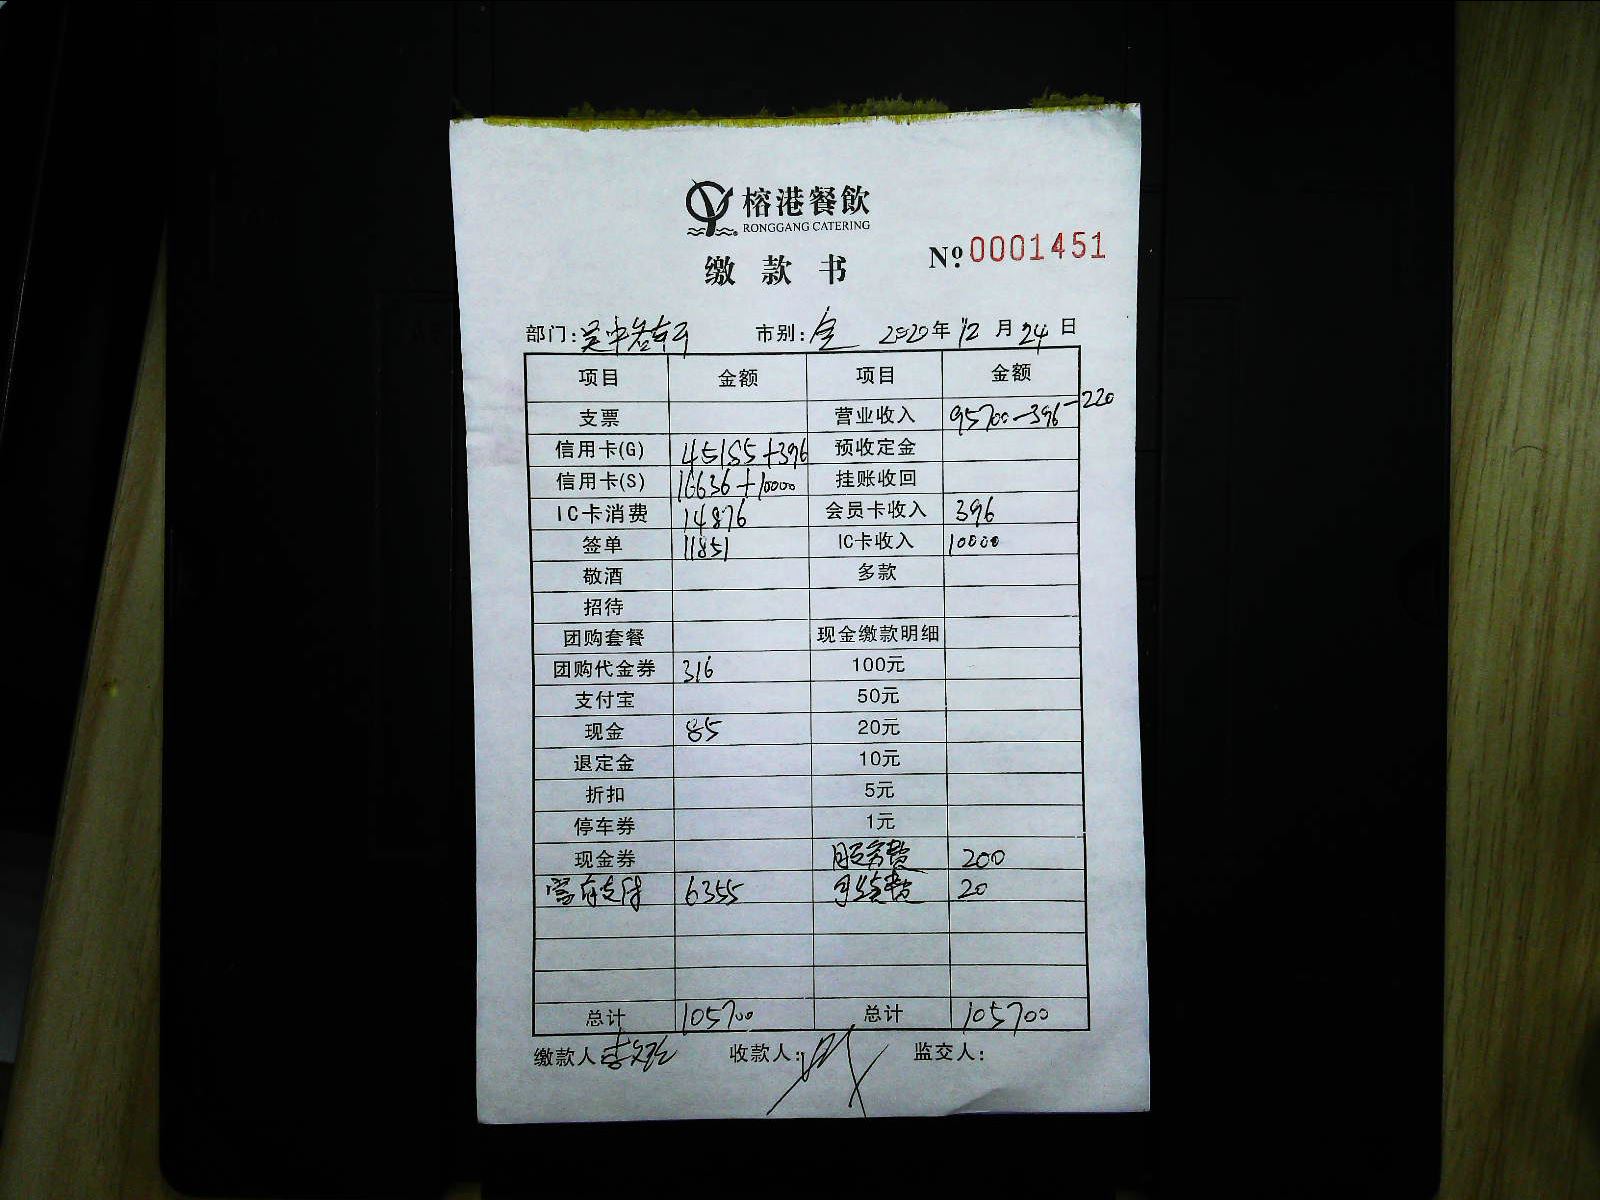 榕港餐飲
RONGGANG CATERING
缴款书
№ 0001451
部门: 吴中 市别: 全 2020年 12 月 24 日
项目 金额 项目 金额
支票 营业收入 95700-396-220
信用卡(G) 45185+396 预收定金
信用卡(S) 16636+10000 挂账收回
IC卡消费 14876 会员卡收入 396
签单 11851 IC卡收入 10000
敬酒 多款
招待
团购套餐 现金缴款明细
团购代金券 316 100元
支付宝 50元
现金 85 20元
退定金 10元
折扣 5元
停车券 1元
现金券 服务费 200
支付 6355 手续费 20
总计 105700 总计 105700
缴款人 收款人: 监交人: